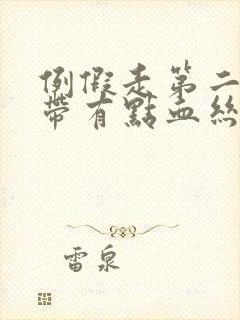 例假走第二
帶有點血絲
雷泉